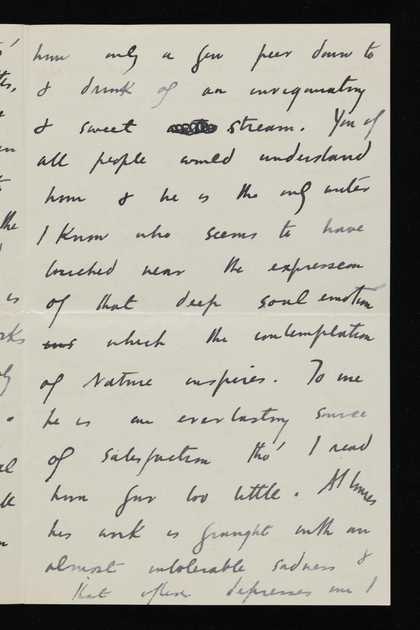 him only a few peer down to
& drink of an invigorating
& sweet stream. You of
all people would understand
him & he is the only writer
I know who seems to have
touched near the expression
of that deep soul emotion
which the contemplation
of Nature inspires. To me
he is an everlasting source
of satisfaction tho' I read
him far too little. At times
his work is fraught with an
almost intolerable sadness &
that often depresses me I